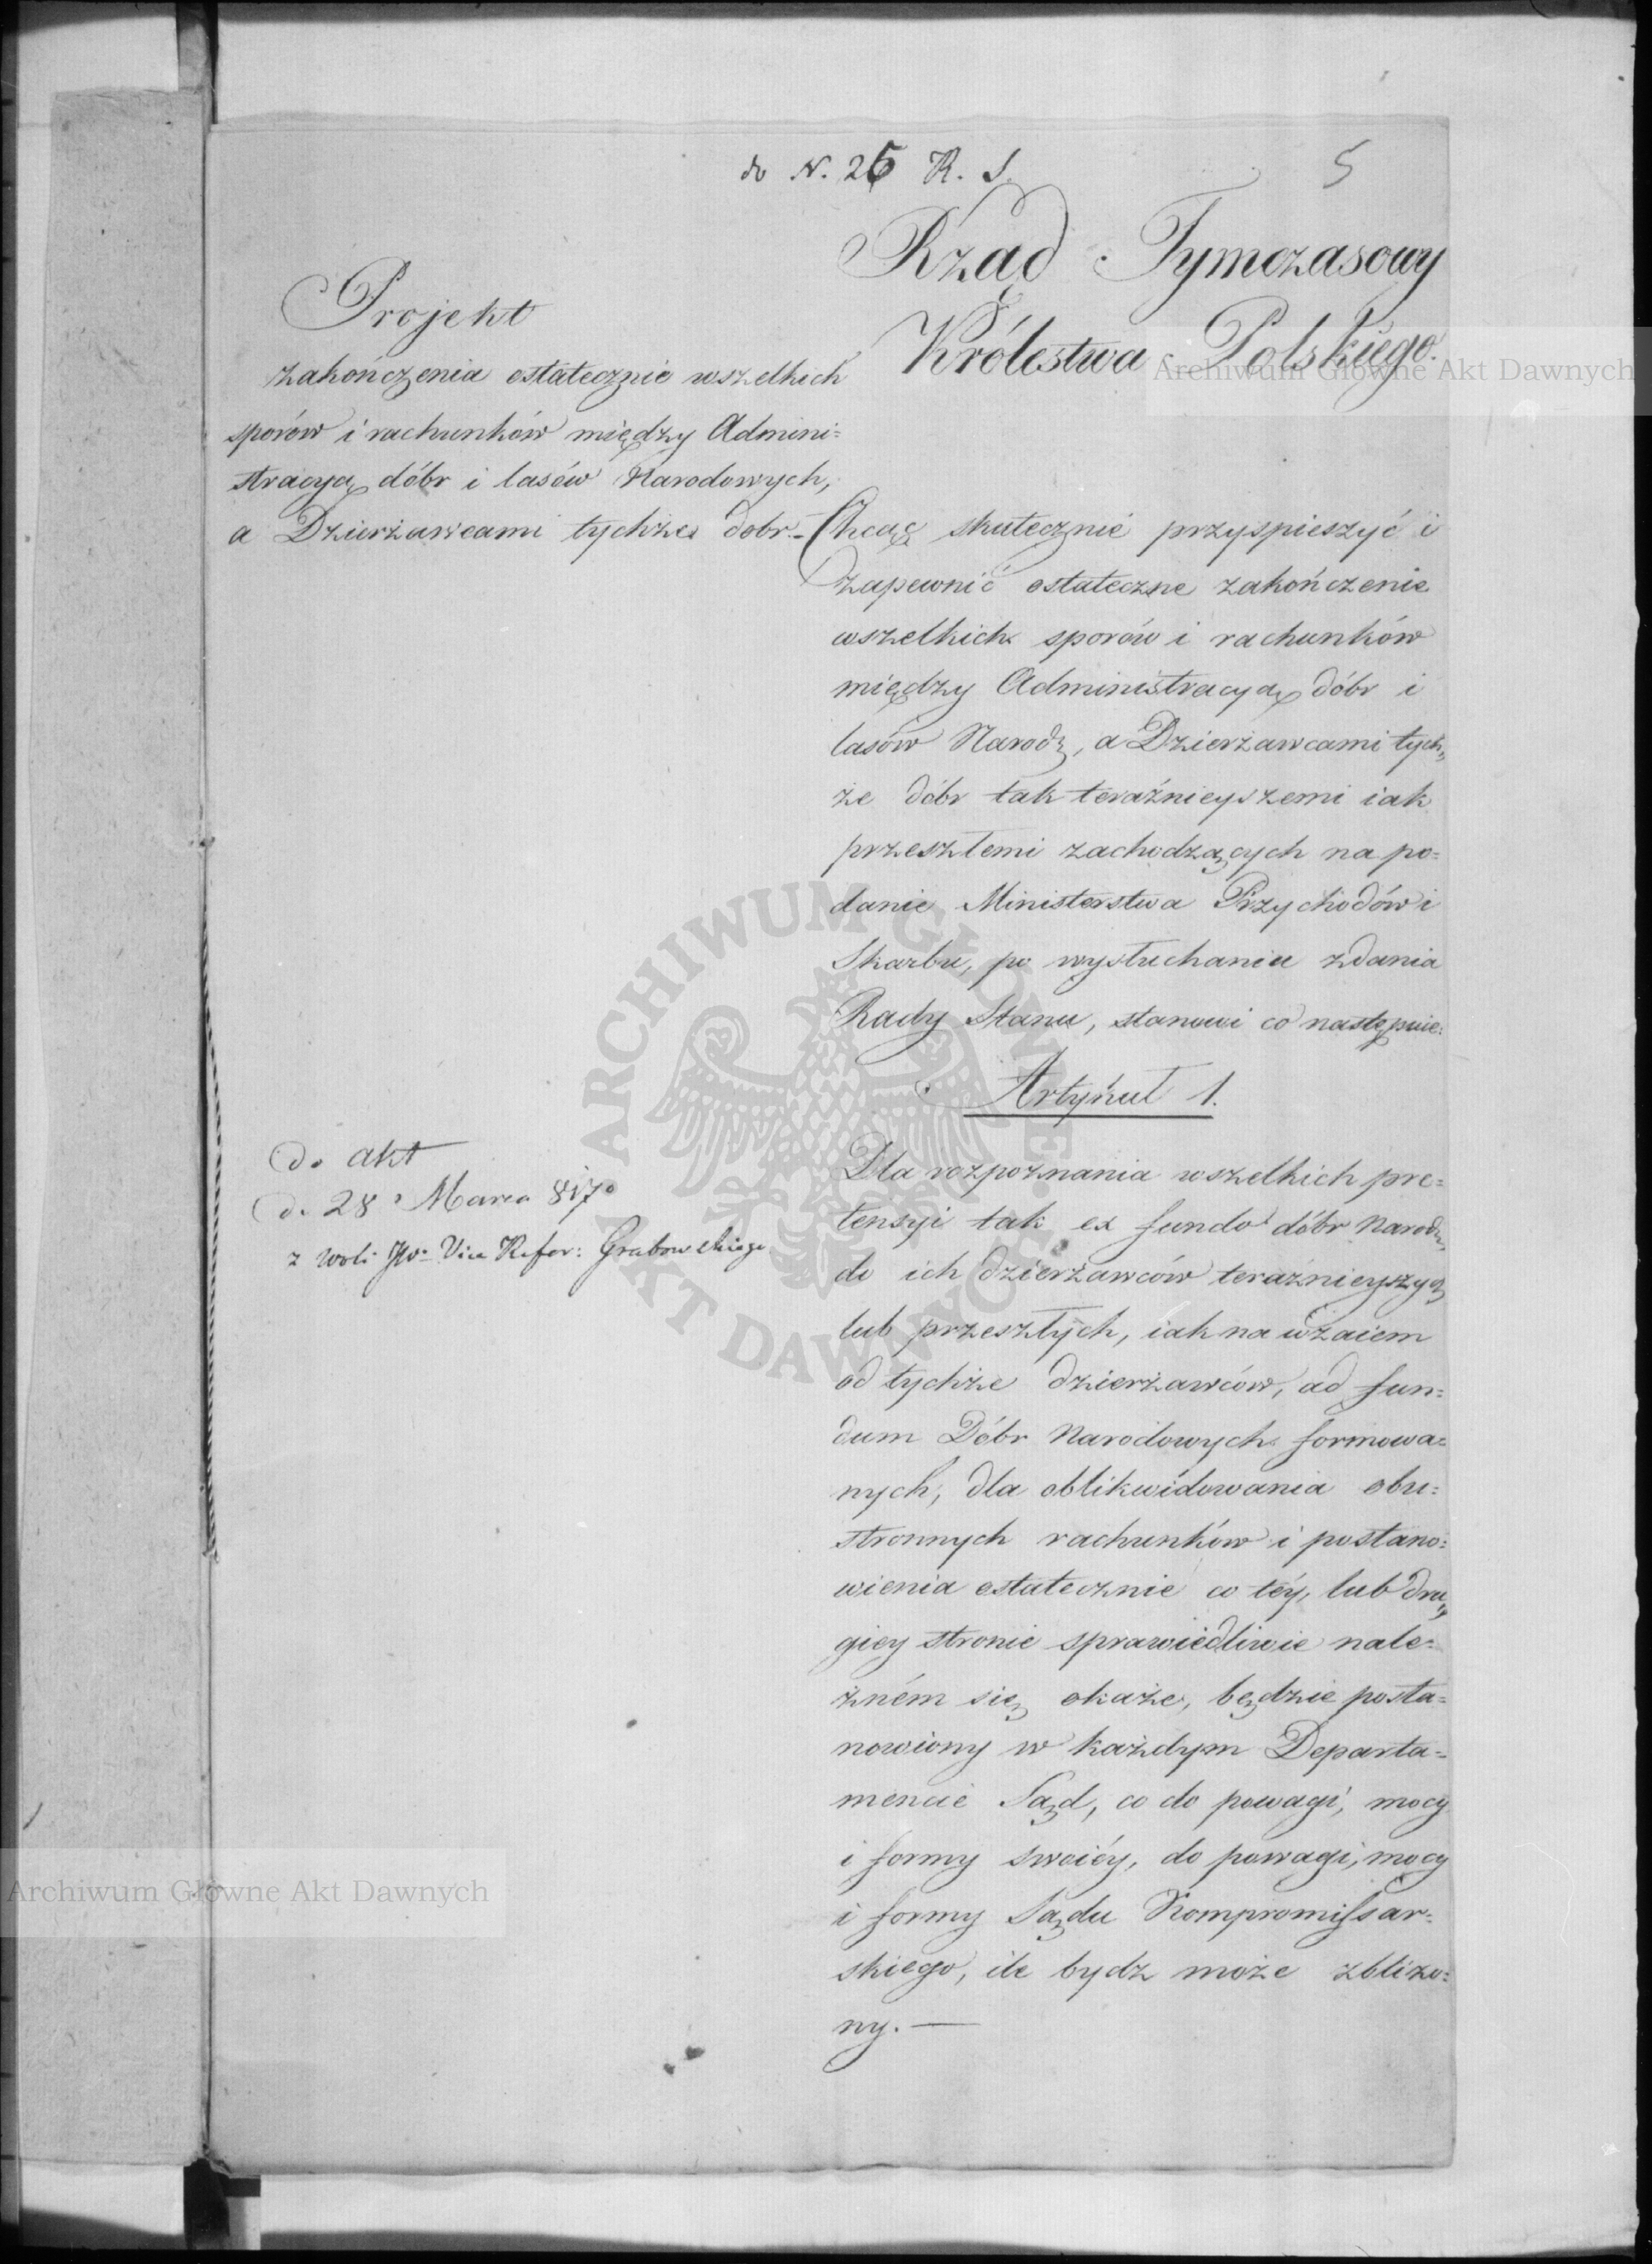 do N. 26 R. S.
5
Rząd Tymczasowy
Królestwa Polskiego.
Projekt
zakończenia ostatecznie wszelkich
sporów i rachunków między Admini=
stracyą dóbr i lasów Narodowych,
a Dzierżawcami tychże dobr.-
Chcąc skutecznie przyspieszyć i
zapewnić ostateczne zakończenie
wszelkich sporów i rachunków
między Administracyą dóbr i
lasów Narodz, a Dzierżawcami tych=
że dóbr tak teraźnieyszemi iak
przeszłemi zachodzących na po=
danie Ministerstwa Przychodów i
Skarbu, po wysłuchaniu zdania
Rady Stanu, stanowi co następuie:
Artykuł 1.
Dla rozpoznania wszelkich pre=
tensyi tak ex fundo dóbr Narodz,
do ich dzierżawców teraźnieyszych
lub przeszłych, iak na wzaiem
od tychże dzierżawców, ad fun=
dum Dóbr Narodowych formowa=
nych, dla oblikwidowania obu=
stronnych rachunków i postano=
wienia ostatecznie co téy, lub dru=
giey stronie sprawiedliwie nale=
żném się okaże, będzie posta=
nowiony w każdym Departa=
mencie Sąd, co do powagi, mocy
i formy swoiéy, do powagi, mocy
i formy Sądu Kompromissar=
skiego, ile bydz może zbliżo=
ny.—
do akt
d. 28 Marca 817
z woli JW. Vice Refer: Grabowskiego
Archiwum Główne Akt Dawnych
Archiwum Główne Akt Dawnych
ARCHIWUM GŁÓWNE AKT DAWNYCH